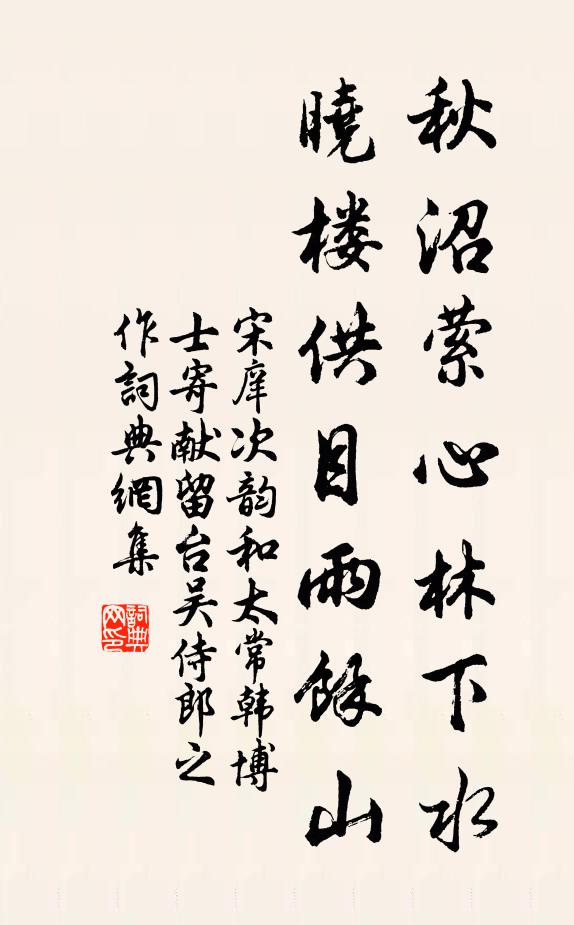 秋沼萦心林下水
曉楼供目雨餘山
宋庠次韵和太常韩博
士寄献留台吴侍郎之
作詞典網集
詞典
网印